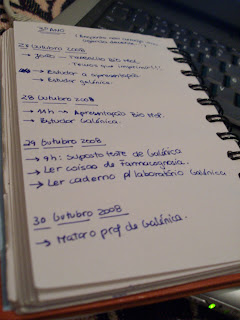 3º ANO
27 Outubro 2008
→ TRABALHO BIO MOL.
Temos que imprimir!!!
→ Estudar a apresentação
→ Estudar galénica.
28 Outubro 2008
→ 11h → Apresentação Bio Mol.
→ Estudar Galénica.
29 Outubro 2008
→ 9h: suposto teste de Galénica
→ Ler coisas de Farmacognosia.
→ Ler caderno p/ laboratório Galénica
30 Outubro 2008
→ Matar o prof de Galénica.